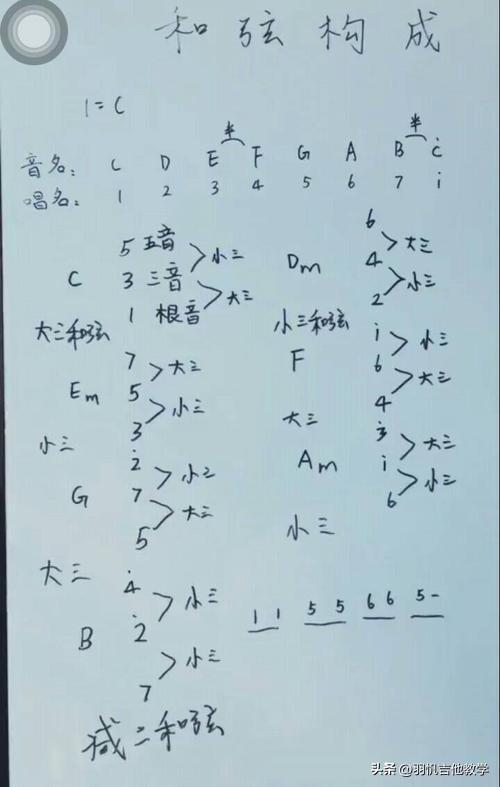 和弦构成
1=C
半 半
音名: C D E F G A B Ċ
唱名: 1 2 3 4 5 6 7 i
C
5 五音
3 三音
1 根音
小三
大三
大三和弦
Dm
6
4
2
大三
小三
小三和弦
Em
7
5
3
大三
小三
小三
F
i
6
4
小三
大三
大三
G
2̇
7
5
小三
大三
大三
Am
3̇
i
6
大三
小三
小三
B
4̇
2̇
7
小三
小三
减三和弦
1 1 5 5 6 6 5-
头条 @羽帆吉他教学